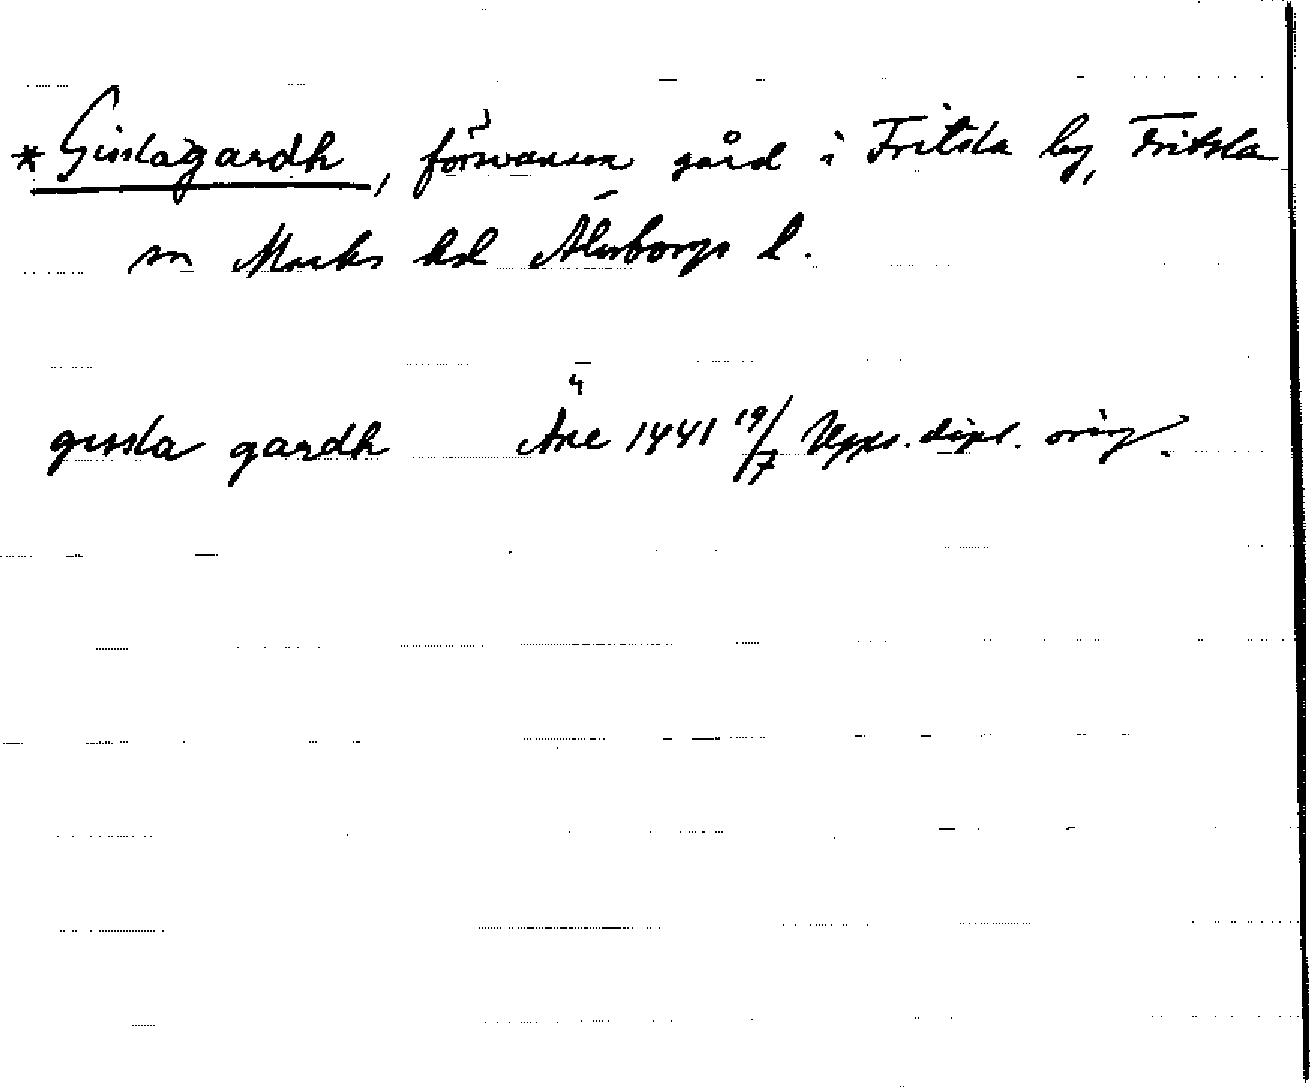 * Gisslagardh, försvunnen gård i Fritsla by, Fritsla
sn Marks hd Älvsborgs l.
gissla gardh Äke 1441 19/7 Upps. dipl. orig.